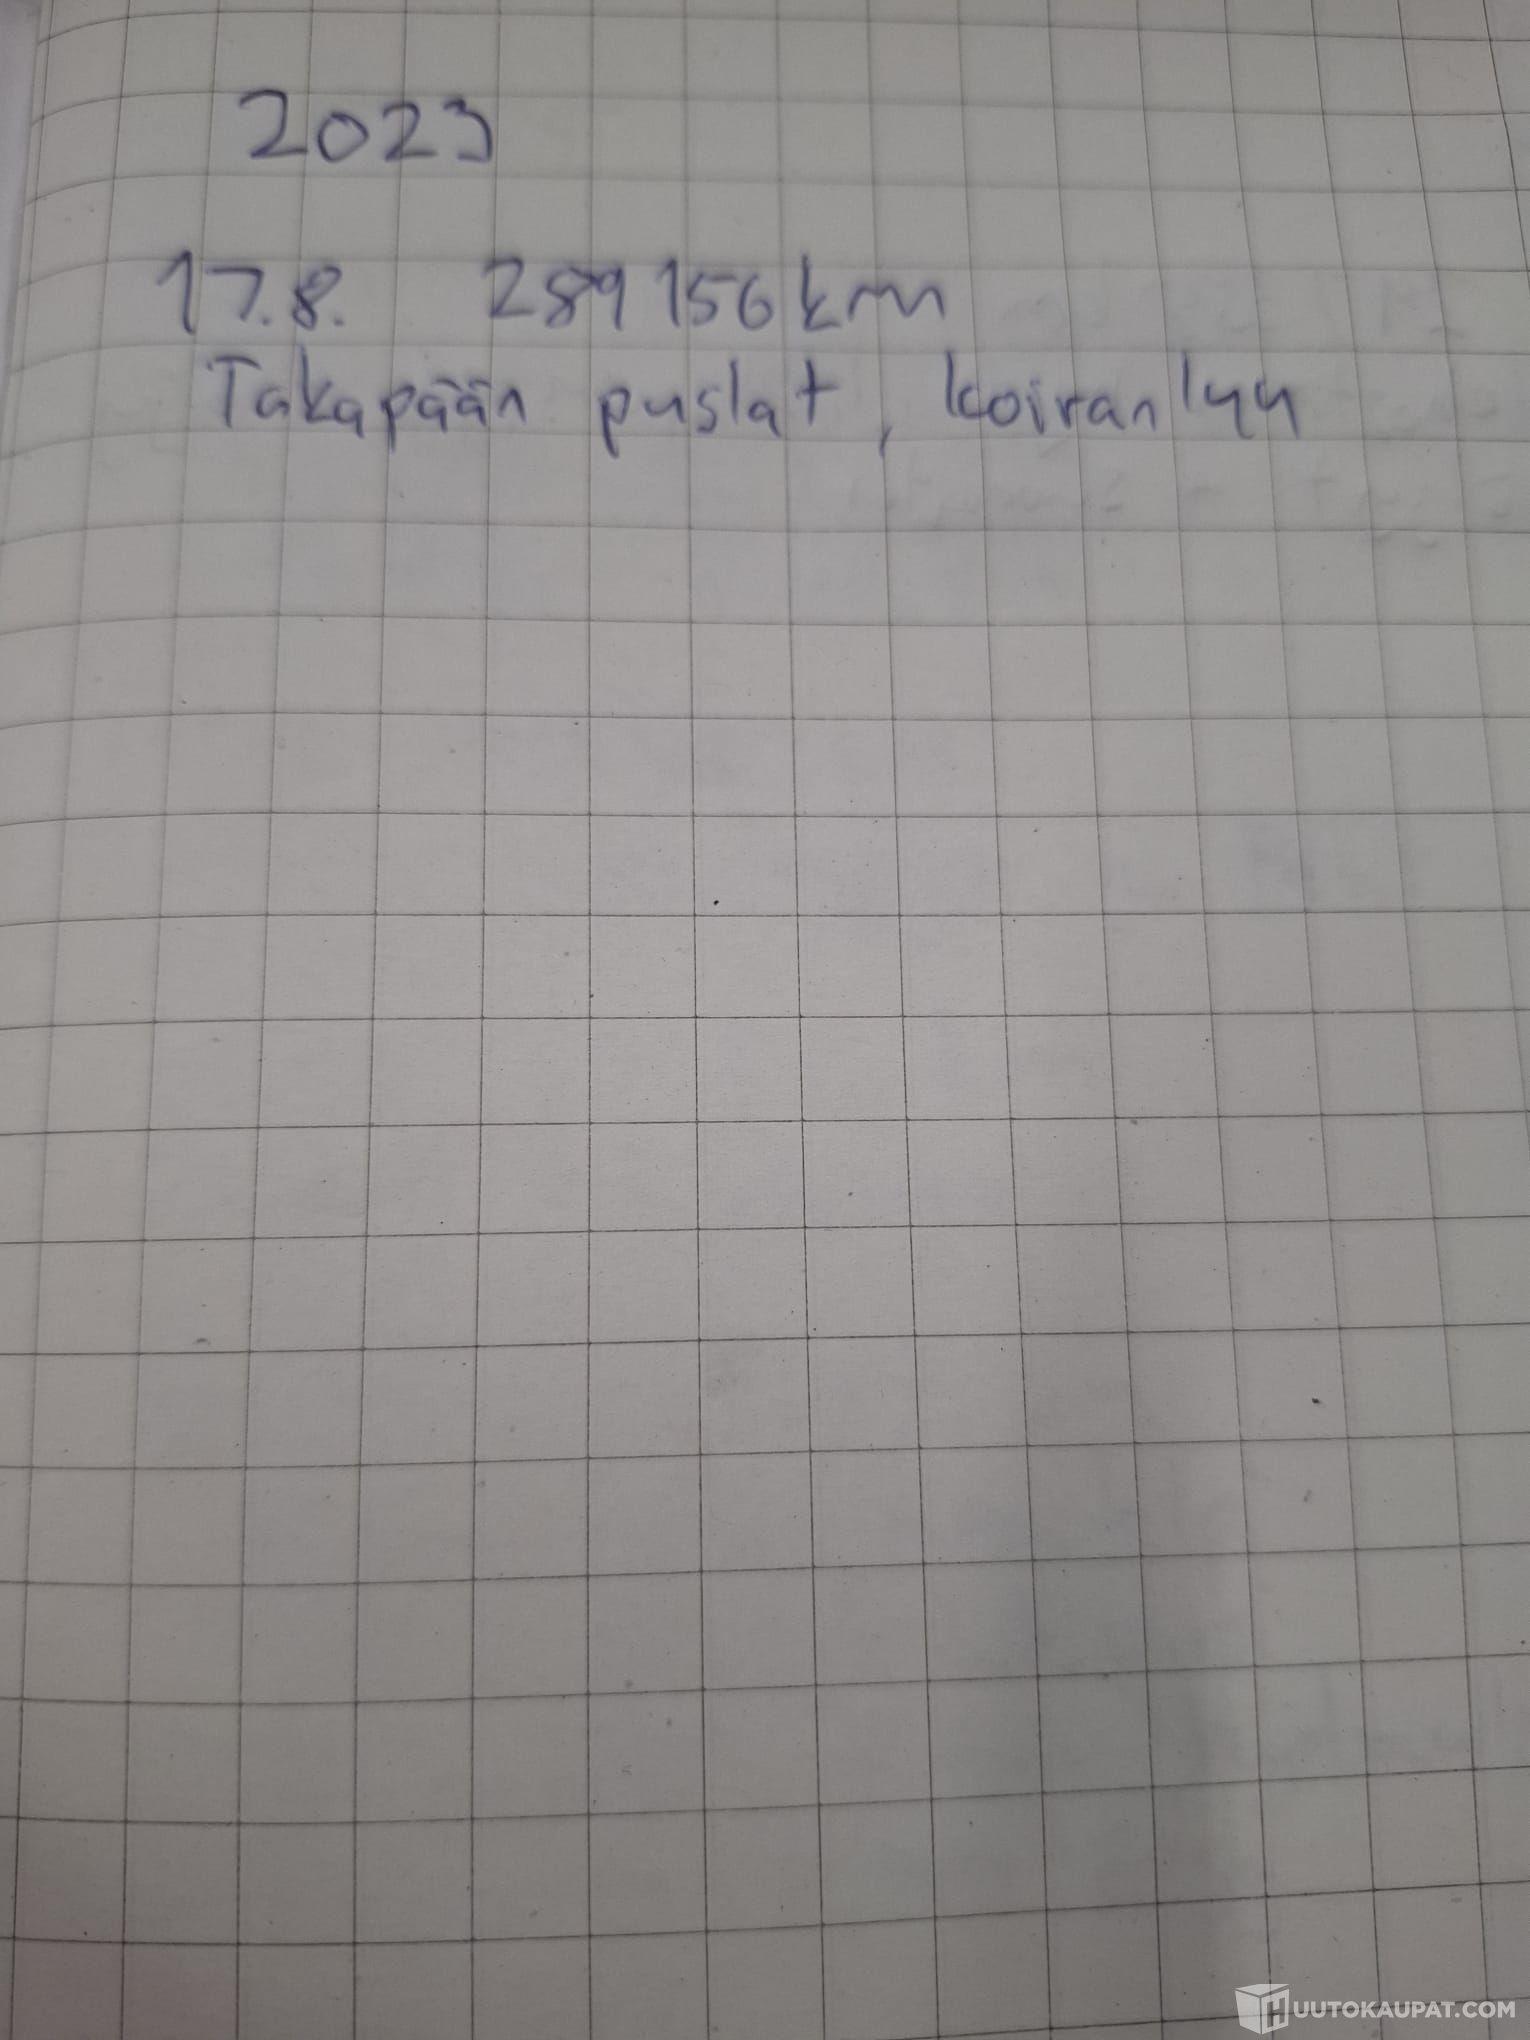 2023
17.8. 289 156 km
Takapään puslat, koiranluu
HUUTOKAUPAT.COM